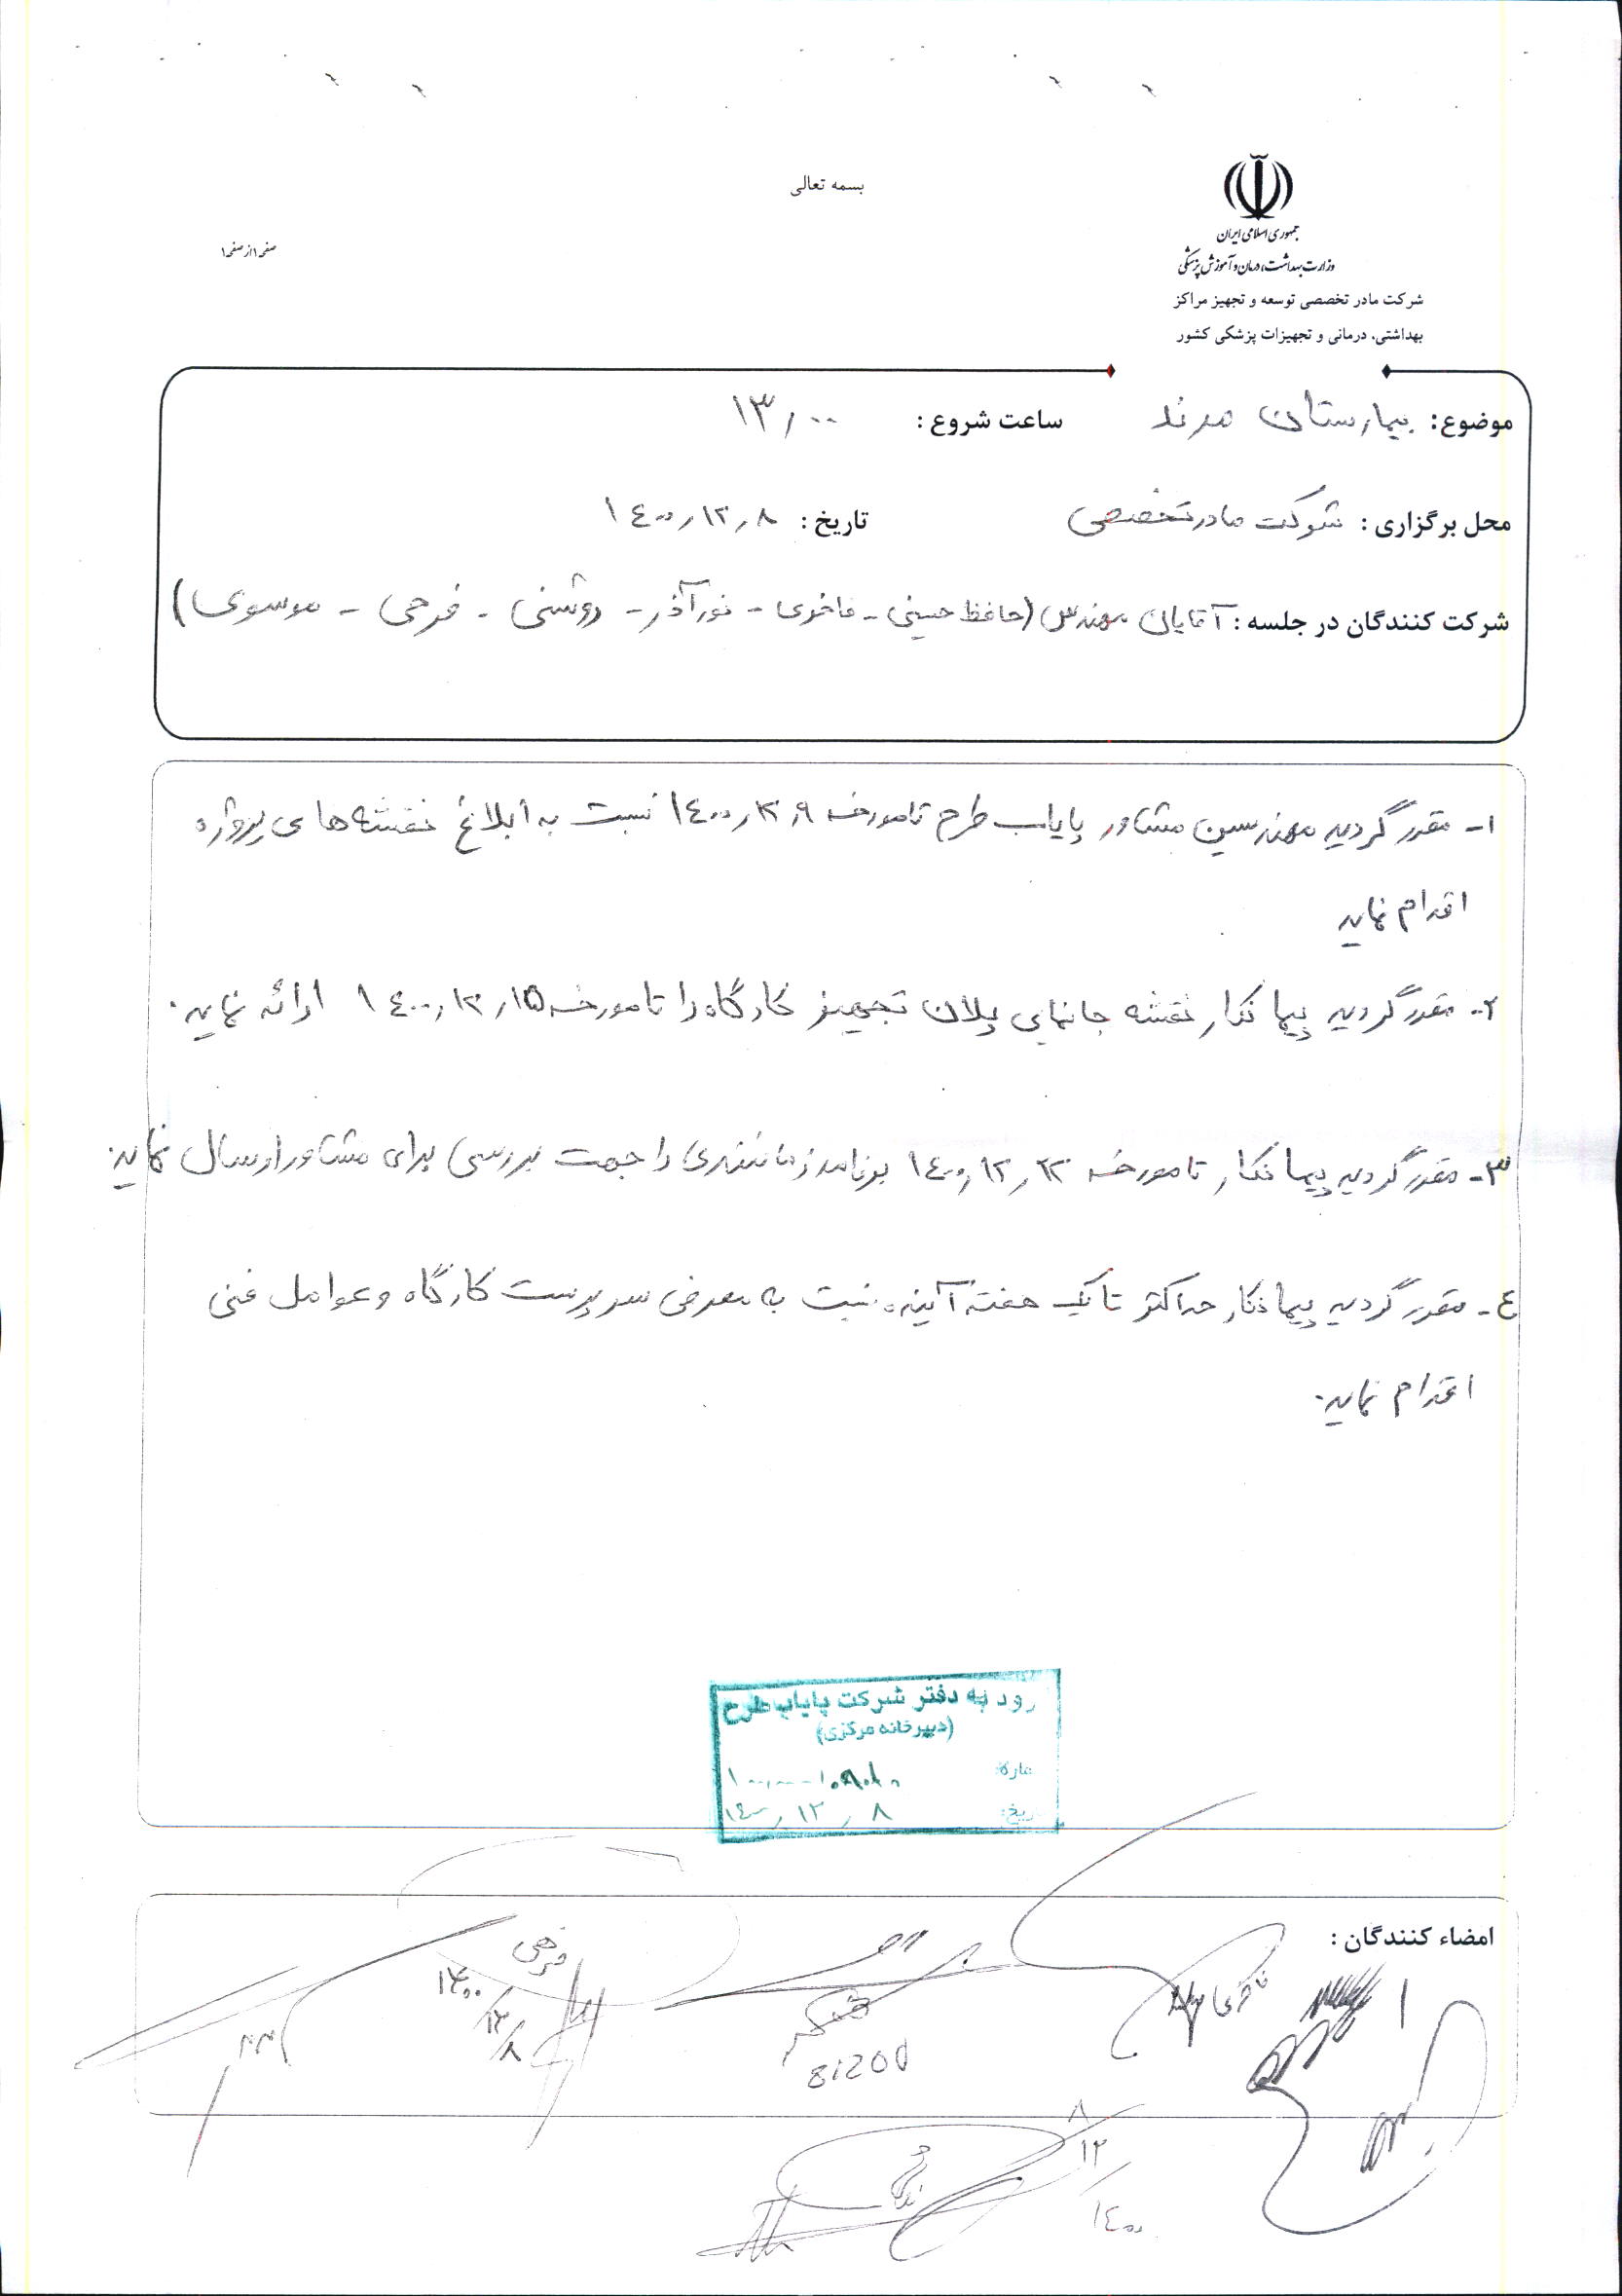 بسمه تعالی
جمهوری اسلامی ایران
وزارت بهداشت، درمان و آموزش پزشکی
شرکت مادر تخصصی توسعه و تجهیز مراکز
بهداشتی، درمانی و تجهیزات پزشکی کشور
صفحه ۱ از صفحه ۱
موضوع: بیمارستان مرند ساعت شروع : ۱۳٫۰۰
محل برگزاری : شرکت مادر تخصصی تاریخ : ۱۴۰۰٫۱۲٫۸
شرکت کنندگان در جلسه : آقایان مهندس (حافظ حسینی - فاخری - نورآذر - روشنی - فرحی - موسوی)
۱- مقرر گردید مهندسین مشاور پایاب طرح تا مورخه ۱۴۰۰٫۱۲٫۹ نسبت به ابلاغ نقشه های پروژه
اقدام نماید
۲- مقرر گردید پیمانکار نقشه جانمایی پلان تجهیز کارگاه را تا مورخه ۱۴۰۰٫۱۲٫۱۵ ارائه نماید.
۳- مقرر گردید پیمانکار تا مورخه ۱۴۰۰٫۱۲٫۲۲ برنامه زمانبندی را جهت بررسی برای مشاور ارسال نماید.
٤- مقرر گردید پیمانکار حداکثر تا یک هفته آینده نسبت به معرفی سرپرست کارگاه و عوامل فنی
اقدام نماید.
رود به دفتر شرکت پایاب طرح
(دبیرخانه مرکزی)
ماره:
ریخ: ۱۴۰۰٫۱۲٫۸
امضاء کنندگان :
فرحی
۱۴۰۰/۱۲/۸
۱۴۰۰/۱۲/۸